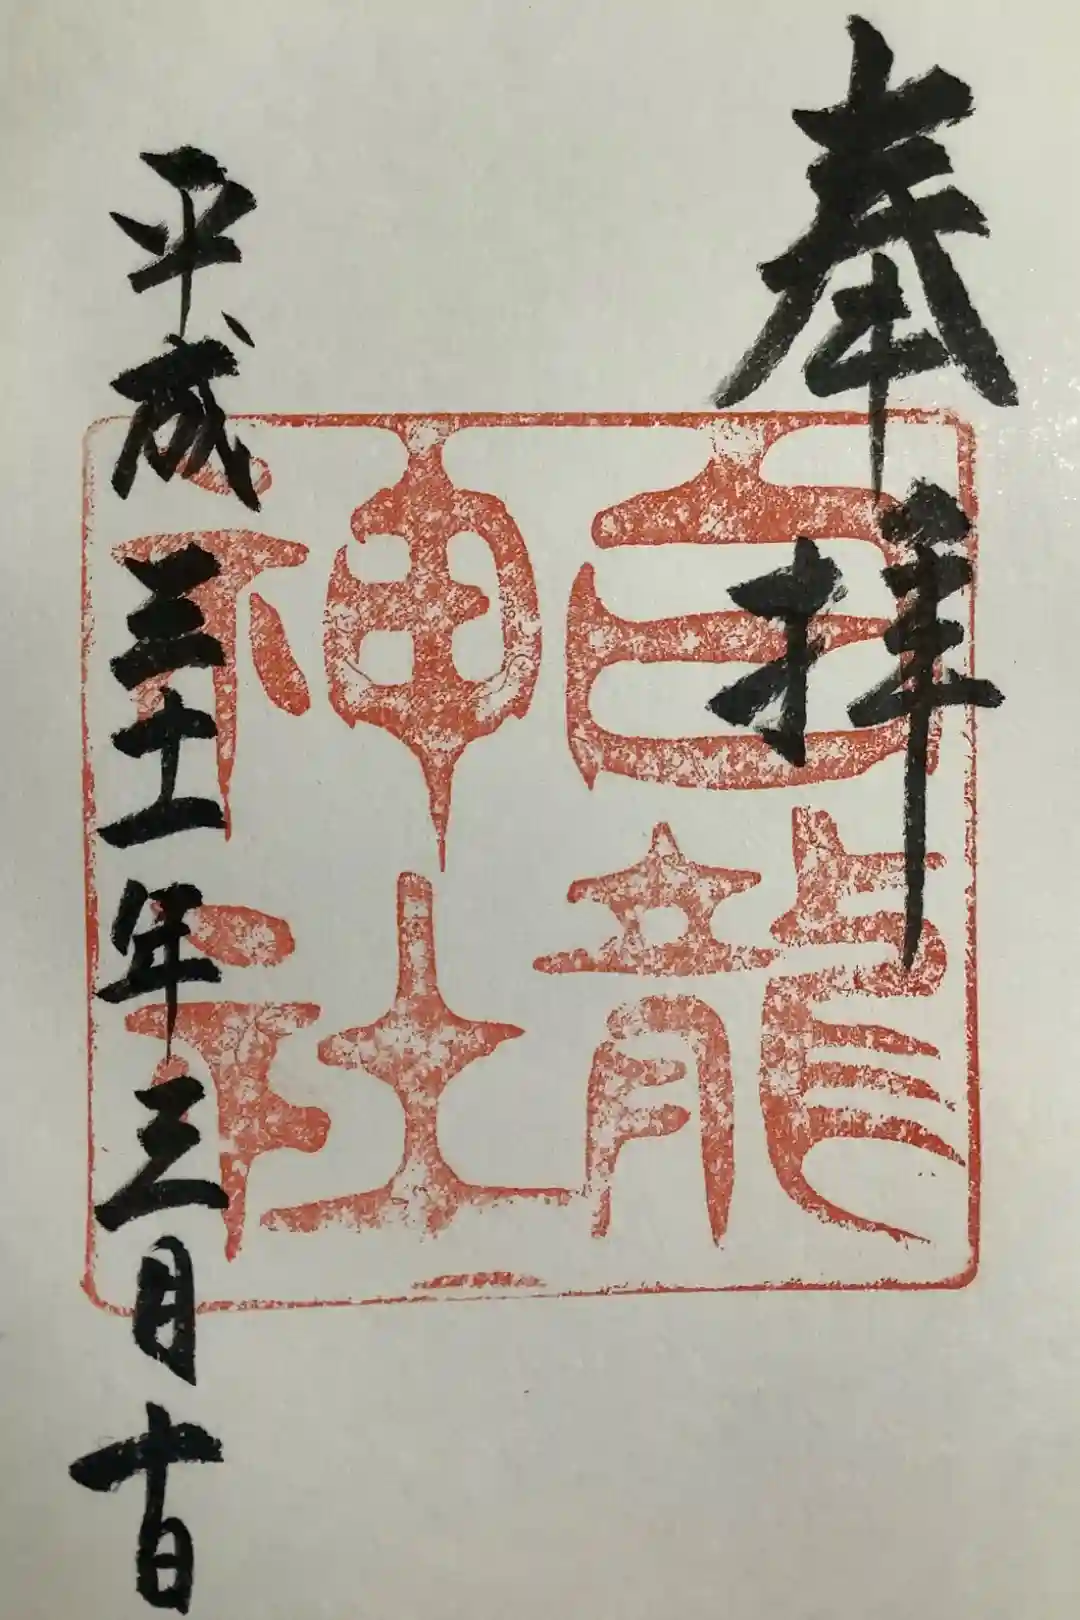 奉拝
白龍
神社
平成三十一年三月十日